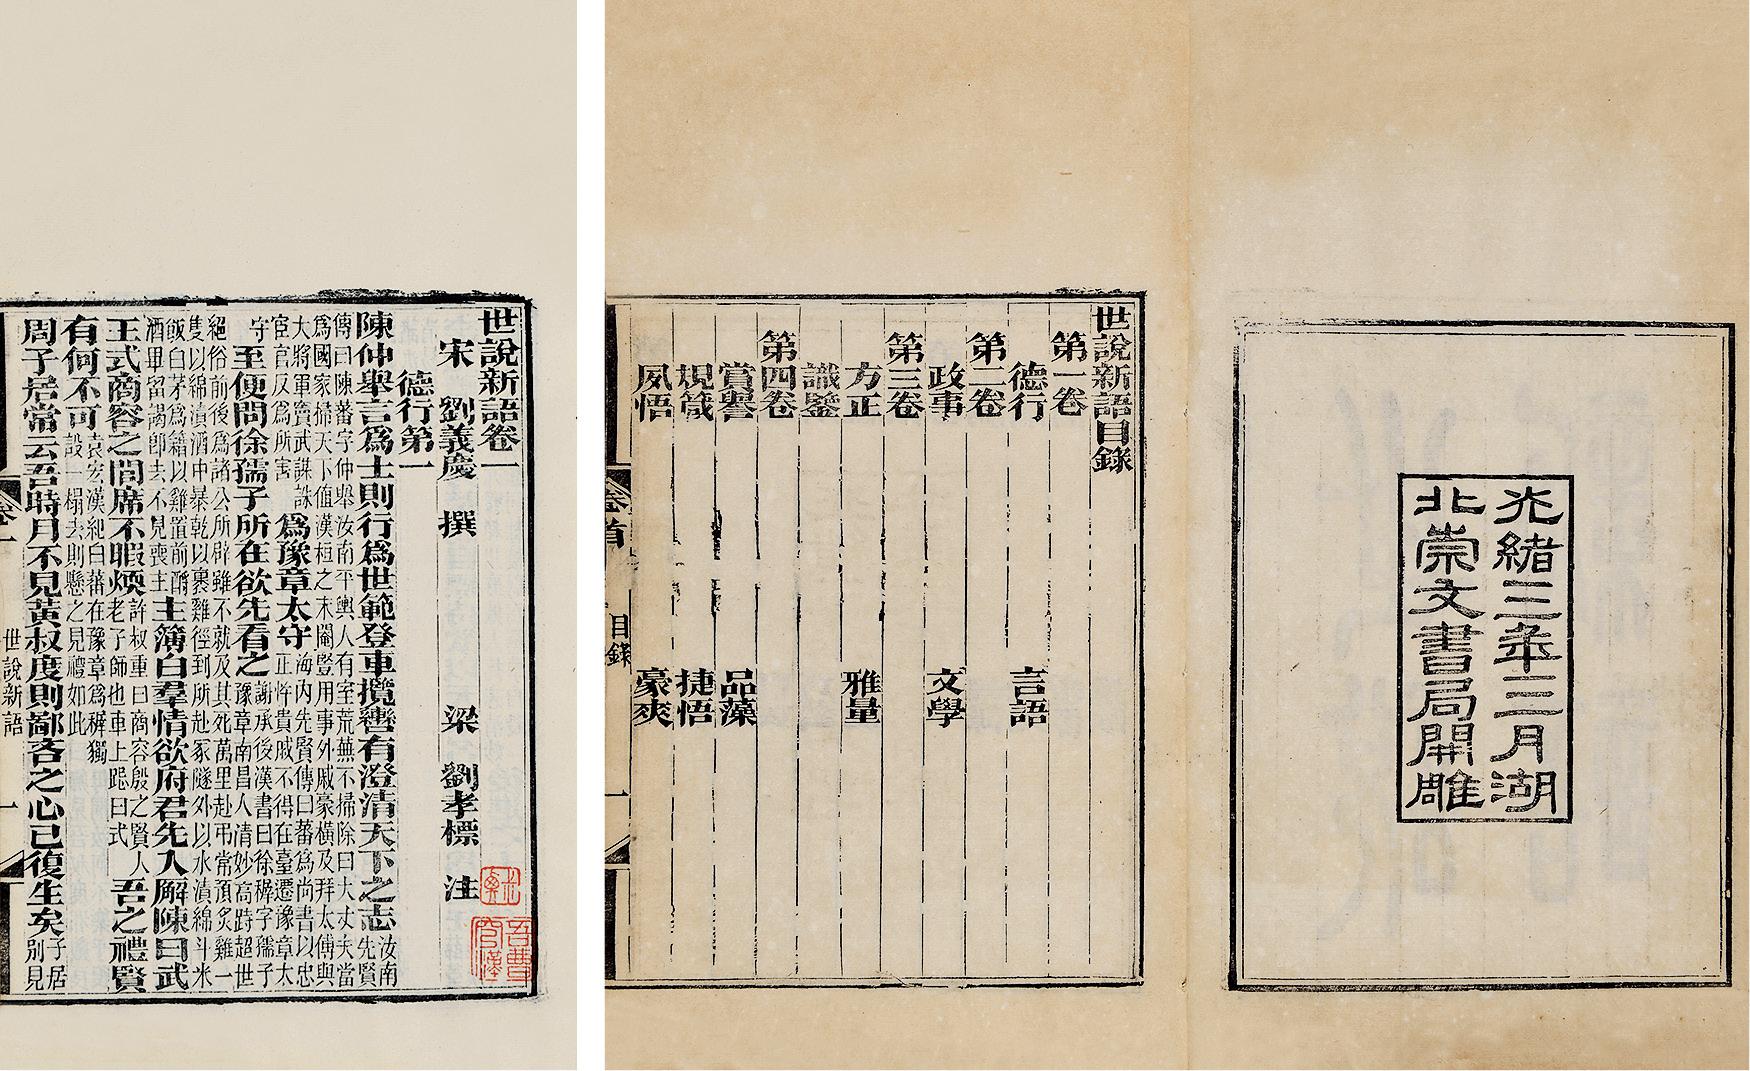 光緒三年三月湖
北崇文書局開雕
世說新語目錄
第一卷
德行 言語
第二卷
政事 文學
第三卷
方正 雅量
識鑒
第四卷
賞譽 品藻
規箴 捷悟
夙悟 豪爽
卷首 目錄 一
世說新語卷一
宋 劉義慶 撰 梁 劉孝標 注
德行第一
陳仲舉言爲士則行爲世範登車攬轡有澄清天下之志汝南先賢
傳曰陳蕃字仲舉汝南平輿人有室荒蕪不掃除曰大丈夫當
爲國家掃天下値漢桓之末閹豎用事外戚豪橫及拜太傅與
大將軍竇武謀誅
宦官反爲所害 爲豫章太守海內先賢傳曰蕃爲尚書以忠
正忤貴戚不得在臺遷豫章太
守 至便問徐孺子所在欲先看之謝承後漢書曰徐穉字孺子
豫章南昌人清妙高跱超世
絕俗前後爲諸公所辟雖不就及其死萬里赴弔常預炙雞一
隻以綿漬酒中暴乾以裹雞徑到所赴冢隧外以水漬綿斗米
飯白茅爲籍以雞置前酹
酒畢留謁卽去不見喪主 主簿白羣情欲府君先入廨陳曰武
王式商容之閭席不暇煗許叔重曰商容殷之賢人
老子師也車上跽曰式 吾之禮賢
有何不可袁宏漢紀曰蕃在豫章爲穉獨
設一榻去則懸之見禮如此
周子居常云吾時月不見黃叔度則鄙吝之心已復生矣子居
別見
卷一 世說新語 一